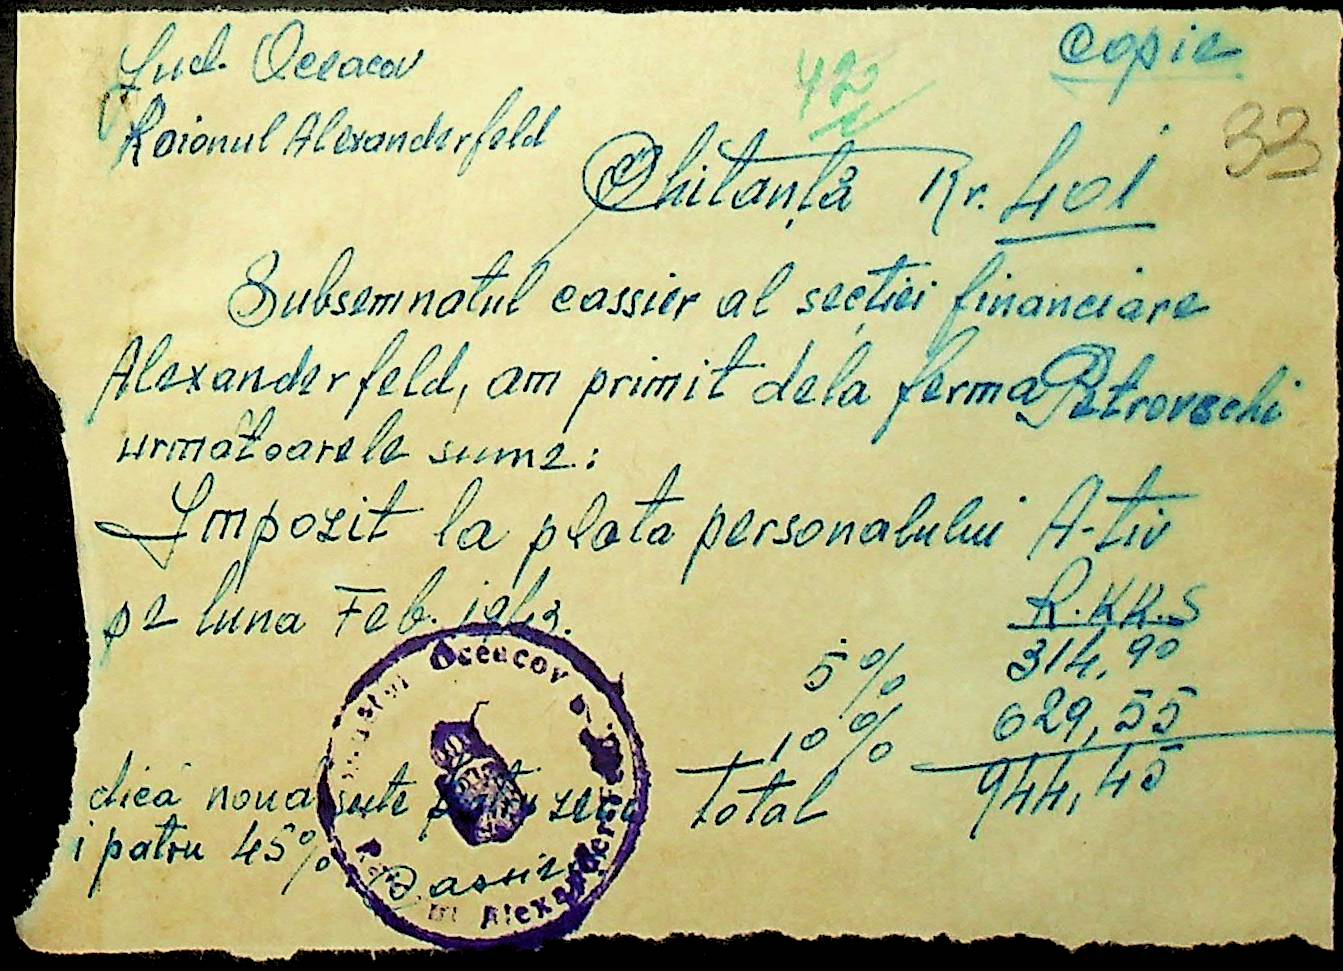 Jud. Oceacov
Copie
42
Raionul Alexanderfeld
33
Chitanță Nr. 401
Subsemnatul cassier al secției financiare
Alexanderfeld, am primit dela ferma Petrovschi
următoarele sume:
Impozit la plata personalului A-tiv
pe luna Feb. 1943.
R.KK.S
5% 314,90
10% 629,55
total 944,45
dică nouă sute patru zeci
i patru 45%
Cassier
Oceacov
Alexanderfeld